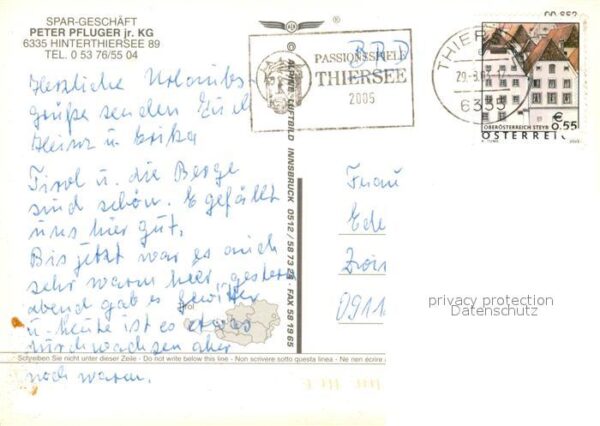 SPAR-GESCHÄFT
PETER PFLUGER jr. KG
6335 HINTERTHIERSEE 89
TEL. 0 53 76/55 04
Herzliche Urlaubs-
grüße senden Euch
Heinz u. Erika
Tirol u. die Berge
sind schön. Es gefällt
uns hier gut.
Bis jetzt war es auch
sehr warm hier, gestern
abend gab es Gewitter
u. heute ist es etwas
aber
noch warm.
Schreiben Sie nicht unter dieser Zeile - Do not write below this line - Non scrivere sotto questa linea - Ne rien écrire
ALPINE LUFTBILD INNSBRUCK 0512 / 58 73 2 - FAX 58 19 65
®
BRD
PASSIONSSPIELE
THIERSEE
2005
THIERSEE
6335
€
0.55
OBERÖSTERREICH STEYR
ÖSTERREICH
Frau
Ede
0911
privacy protection
Datenschutz